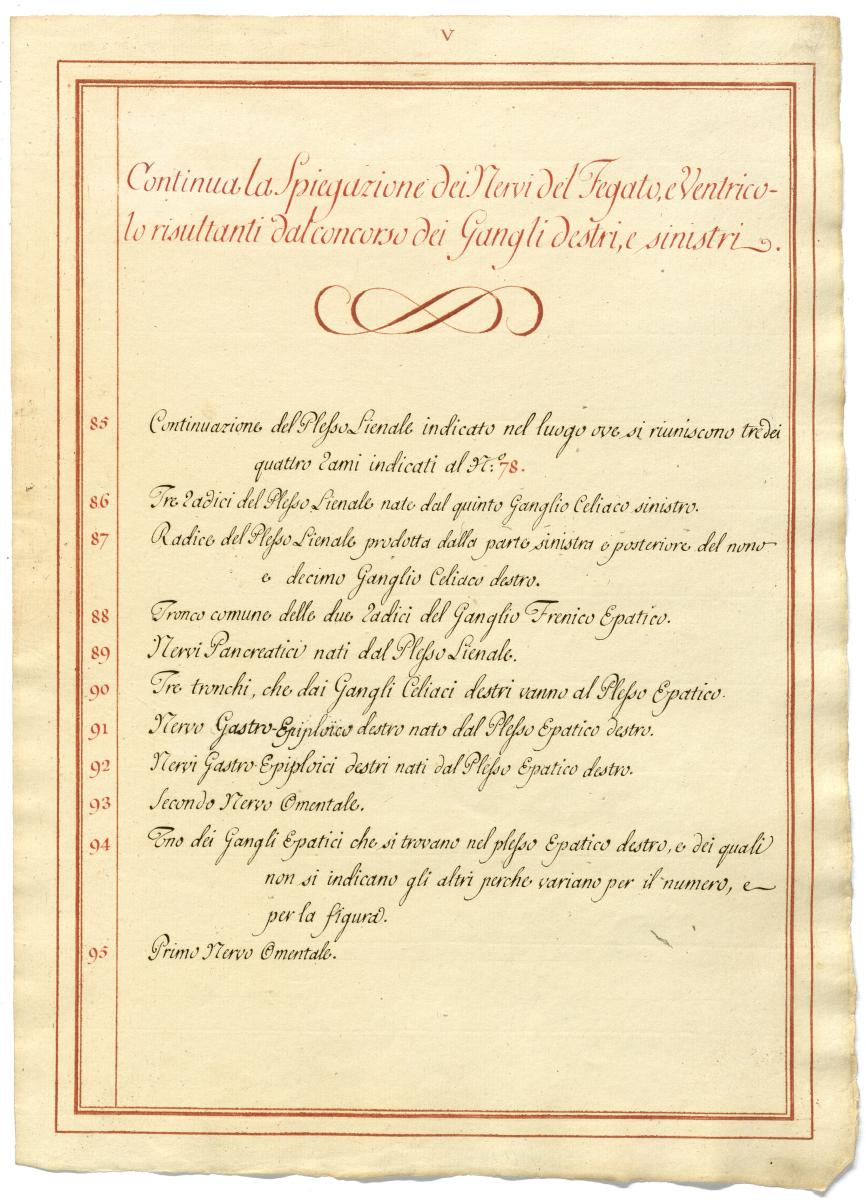 V
Continua la Spiegazione dei Nervi del Fegato, e Ventrico-
lo risultanti dal concorso dei Gangli destri, e sinistri.
85 Continuazione del Plesso Lienale indicato nel luogo ove si riuniscono tre dei
quattro rami indicati al N.º 78.
86 Tre radici del Plesso Lienale nate dal quinto Ganglio Celiaco sinistro.
87 Radice del Plesso Lienale prodotta dalla parte sinistra e posteriore del nono
e decimo Ganglio Celiaco destro.
88 Tronco comune delle due radici del Ganglio Frenico Epatico.
89 Nervi Pancreatici nati dal Plesso Lienale.
90 Tre tronchi, che dai Gangli Celiaci destri vanno al Plesso Epatico.
91 Nervo Gastro-Epiploico destro nato dal Plesso Epatico destro.
92 Nervi Gastro-Epiploici destri nati dal Plesso Epatico destro.
93 Secondo Nervo Omentale.
94 Uno dei Gangli Epatici che si trovano nel plesso Epatico destro, e dei quali
non si indicano gli altri perche variano per il numero, e
per la figura.
95 Primo Nervo Omentale.